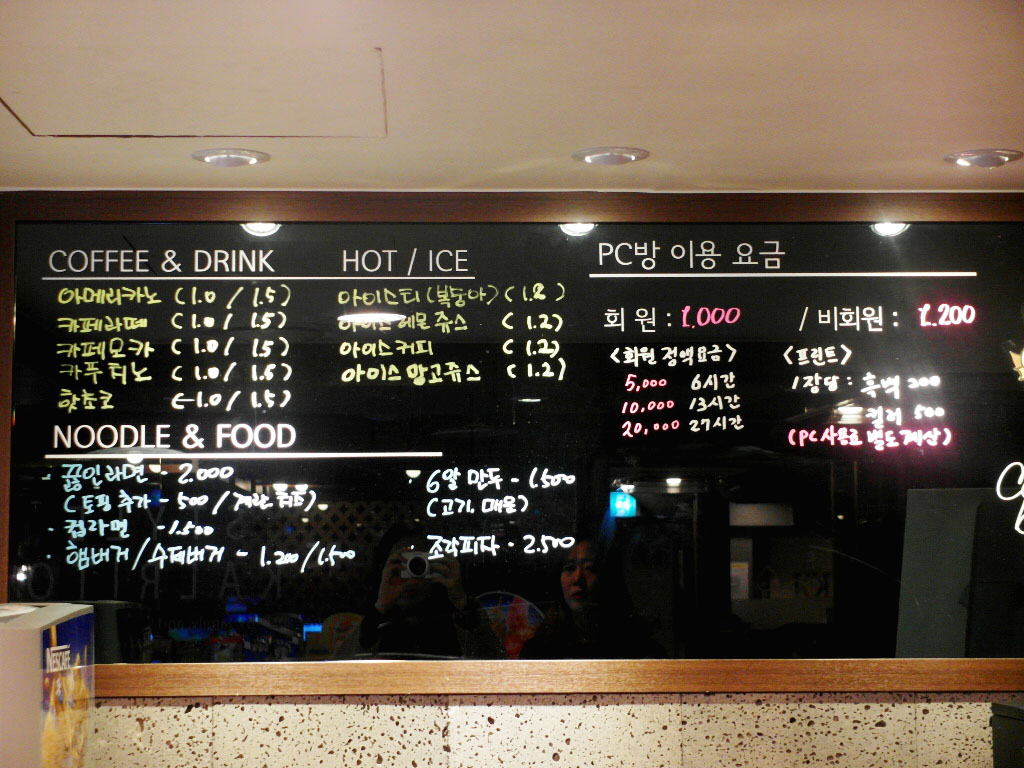 COFFEE & DRINK HOT / ICE
아메리카노 (1.0 / 1.5)
카페라떼 (1.0 / 1.5)
카페모카 (1.0 / 1.5)
카푸치노 (1.0 / 1.5)
핫쵸코 (1.0 / 1.5)
아이스티 (복숭아) (1.2)
아이스레몬쥬스 (1.2)
아이스커피 (1.2)
아이스망고쥬스 (1.2)
NOODLE & FOOD
· 끓인라면 - 2.000
(토핑추가 - 500 / 계란, 치즈)
· 컵라면 - 1.500
· 햄버거 / 수제버거 - 1.200 / 1.500
· 6알 만두 - 1.500
(고기, 매운)
· 조각피자 - 2.500
PC방 이용 요금
회 원 : 1.000 / 비회원 : 1.200
<회원 정액요금>
5,000 6시간
10.000 13시간
20,000 27시간
<프린트>
1장당 : 흑백 200
컬러 500
(PC사용료 별도계산)
NESCAFÉ